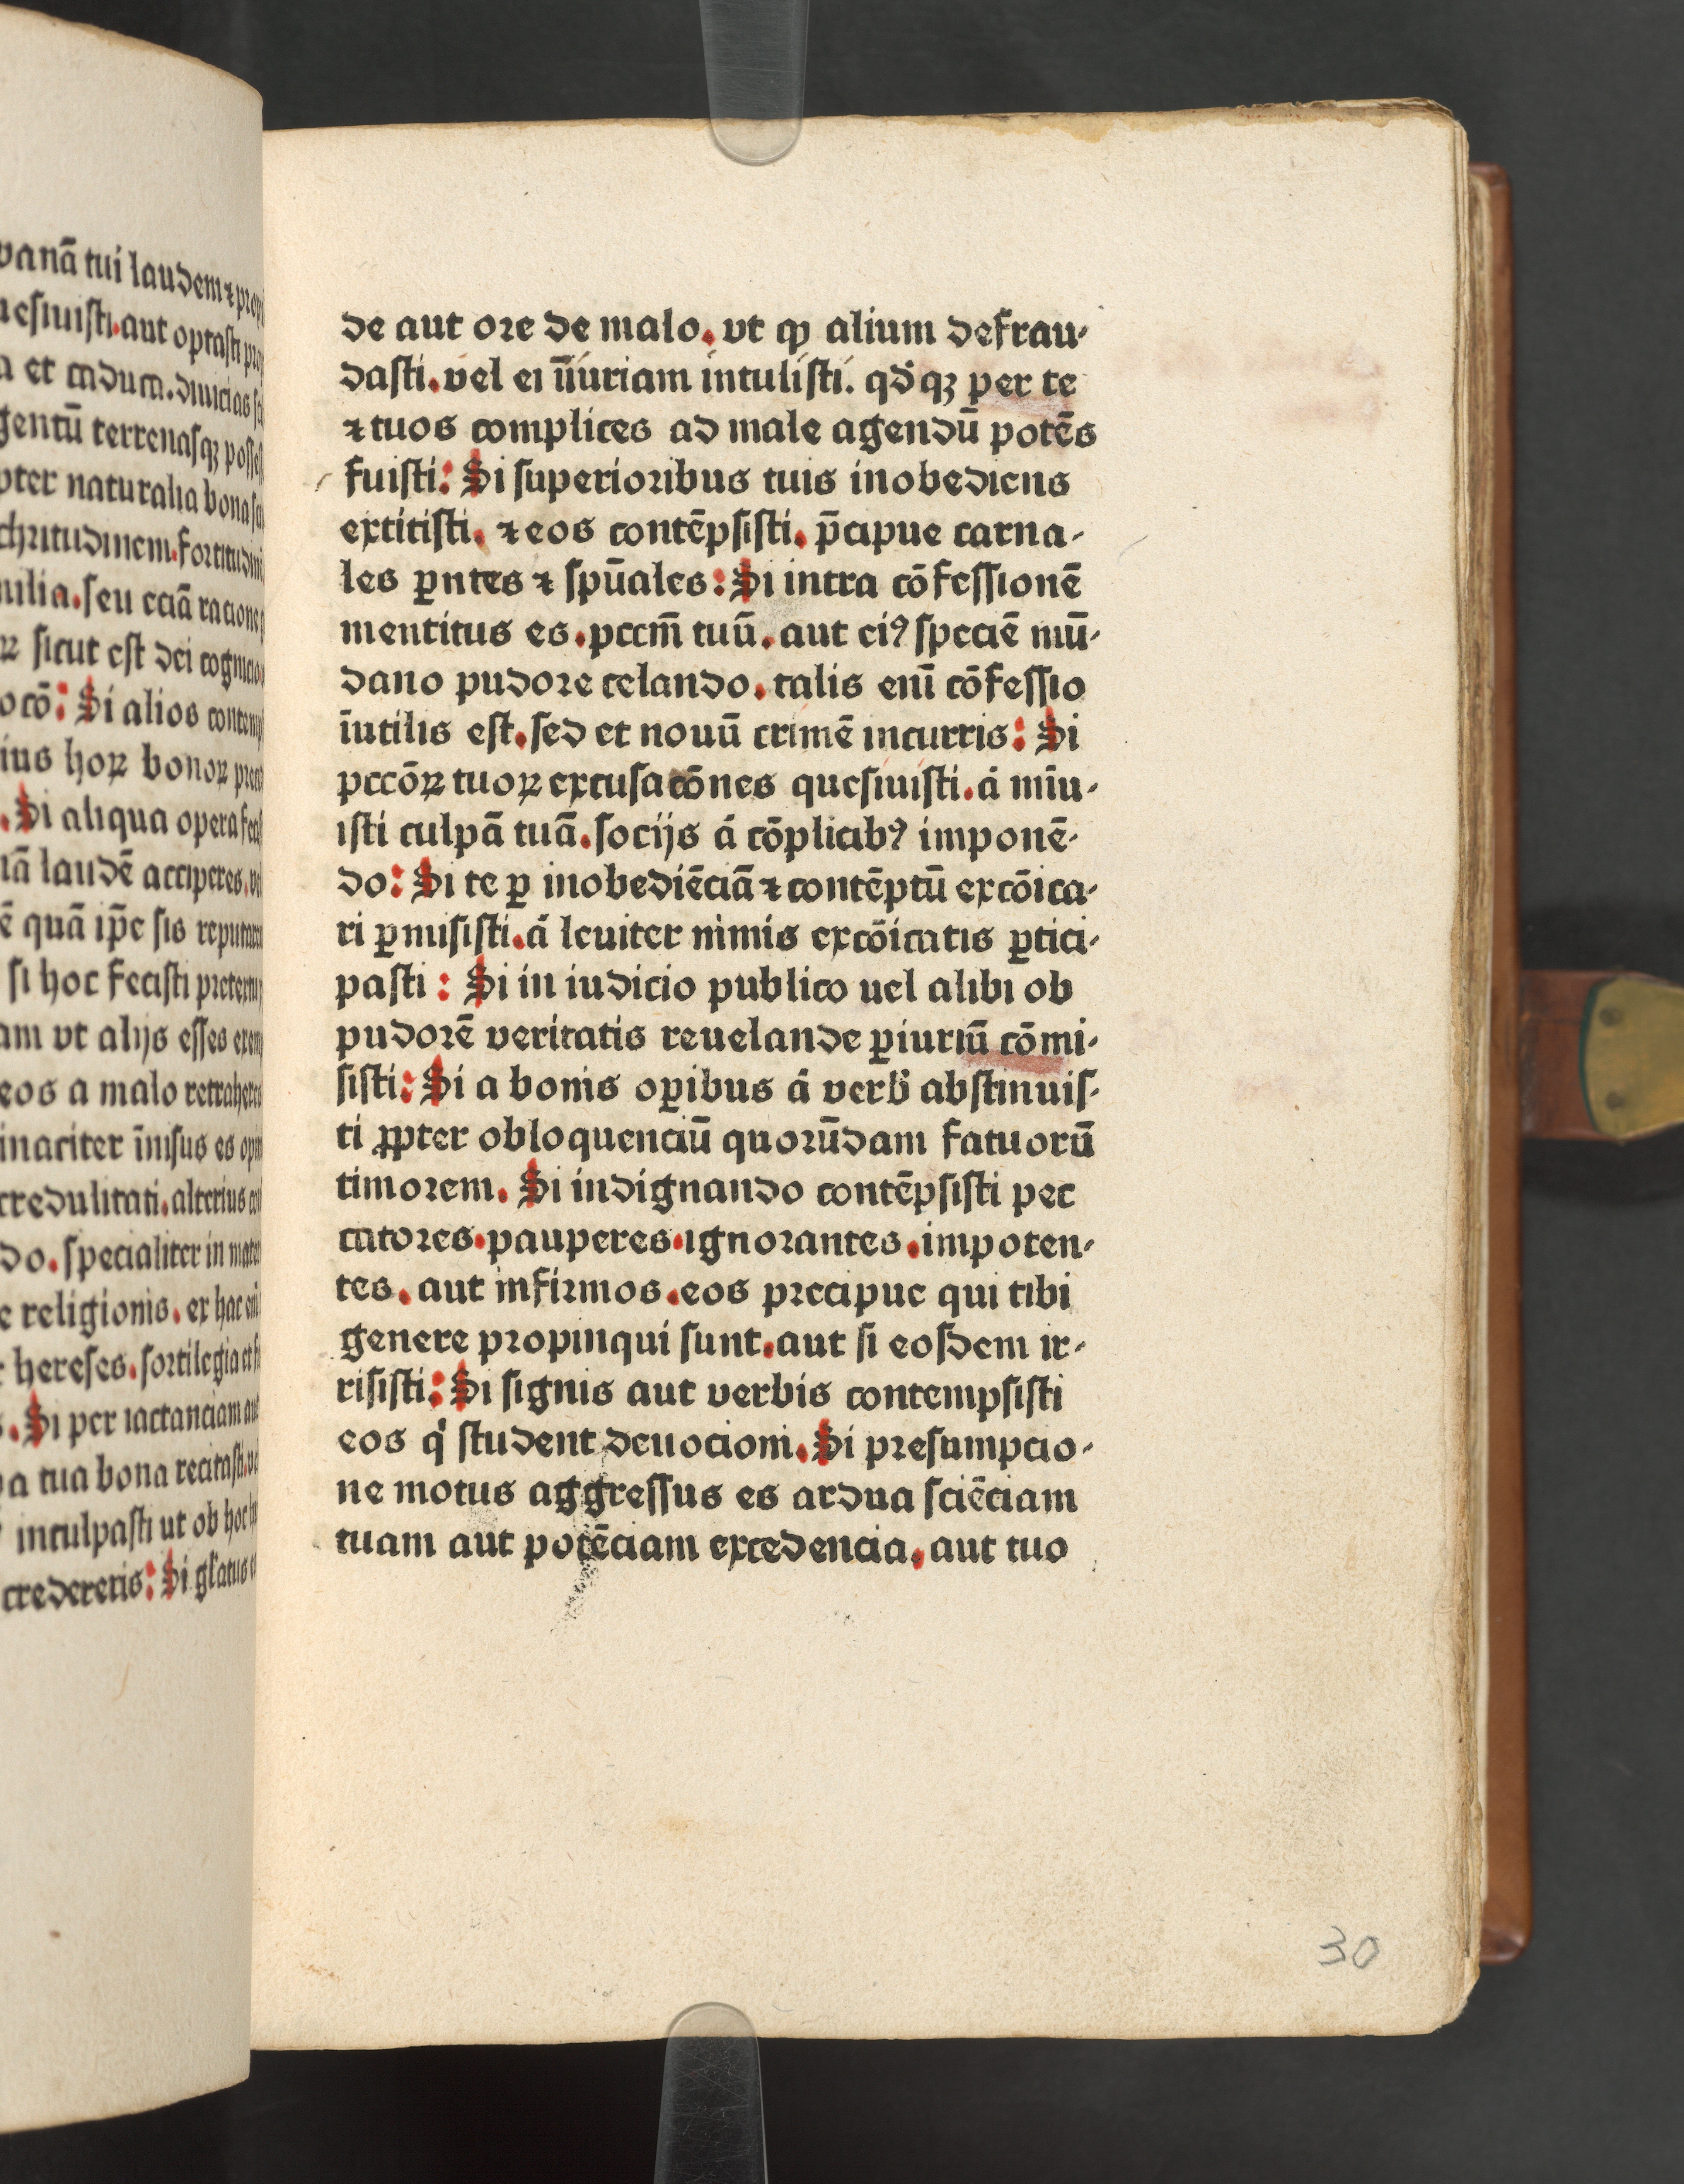 vanā tui laudem ⁊
uesiuisti. aut optasti
a et caduca. diuicias
gentū terrenasqꝫ
pter naturalia bona
chritudinem. fortitudini
milia. seu eciā racione
ꝝ sicut est dei
ocō: Si alios
ius hoꝝ bonoꝝ
. Si aliqua opera
nā laudē acciperes.
ē quā ip̄e sis
si hoc fecisti
am vt alijs esses
eos a malo
inaciter īnisus es
credulitati. alterius
do. specialiter in
e religionis. ex hac
hereses. sortilegia et
. Si per iactanciam aut
a tua bona recitasti.
inculpasti ut ob hoc
crederetis: Si
de aut ore de malo. vt ꝙ alium defrau-
dasti. vel ei īiuriam intulisti. qd̄qꝫ per te
⁊ tuos complices ad male agendū potēs
fuisti: Si superioribus tuis inobediens
extitisti. ⁊ eos contēpsisti. p̄cipue carna-
les ꝑntes ⁊ spūales: Si intra cōfessionē
mentitus es. pccm̄ tuū. aut eiꝰ speciē mū-
dano pudore celando. talis enī cōfessio
īutilis est. sed et nouū crimē incurris: Si
pccōꝝ tuoꝝ excusacōnes quesiuisti. á mīu-
isti culpā tuā. socijs á cōplicibꝰ imponē-
do: Si te ꝑ inobediēciā ⁊ contēptū excōica-
ri ꝑmisisti. á leuiter nimis excōicatis ꝑtici-
pasti : Si in iudicio publico uel alibi ob
pudorē veritatis reuelande ꝑiuriū cōmi-
sisti: Si a bonis oꝑibus á verb̄ abstinuis-
ti ꝓpter obloquenciū quorūdam fatuorū
timorem. Si indignando contēpsisti pec
catores. pauperes. ignorantes. impoten-
tes. aut infirmos. eos precipue qui tibi
genere propinqui sunt. aut si eosdem ir-
risisti: Si signis aut verbis contempsisti
eos q̇ student deuocioni. Si presumpcio-
ne motus aggressus es ardua sciēciam
tuam aut potēciam excedencia. aut tuo
30